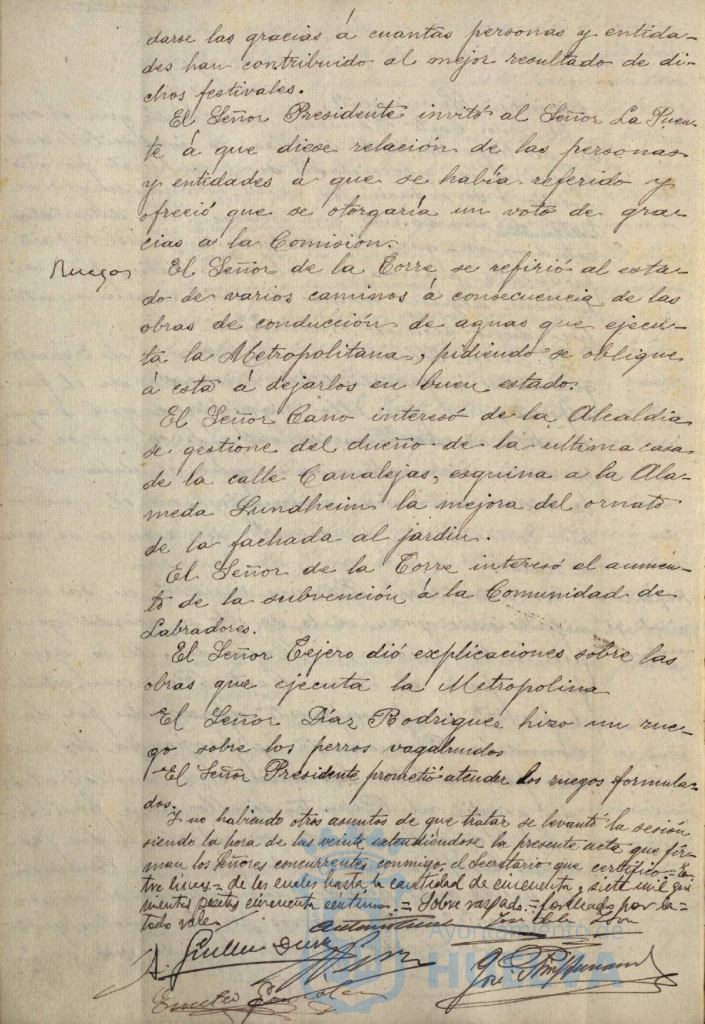 darse las gracias á cuantas personas y entida-
des han contribuido al mejor resultado de di-
chos festivales.
El Señor Presidente invitó al Señor La Puen-
te á que diese relación de las personas
y entidades á que se había referido y
ofreció que se otorgaría un voto de gra-
cias a la Comisión.
Ruegos
El Señor de la Torre se refirió al esta-
do de varios caminos á consecuencia de las
obras de conducción de aguas que ejecu-
ta la Metropolitana, pidiendo se oblique
á esta á dejarlos en buen estado.
El Señor Cano interesó de la Alcaldia
se gestione del dueño de la ultima casa
de la calle Canalejas, esquina a la Ala-
meda Sundheim la mejora del ornato
de la fachada al jardin.
El Señor de la Torre interesó el aumen-
to de la subvención á la Comunidad de
Labradores.
El Señor Tejero dió explicaciones sobre las
obras que ejecuta la Metropolina
El Señor Díaz Rodriguez hizo un rue-
go sobre los perros vagabundos
El Señor Presidente prometió atender los ruegos formula-
dos.
Y no habiendo otros asuntos de que tratar se levantó la sesión
siendo la hora de las veinte extendiéndose la presente acta que fir-
man los señores concurrentes conmigo, el Secretario que certifico = En-
tre lineas = de los cuales hasta la cantidad de cincuenta y siete mil qui-
nientas pesetas cincuenta céntimos. = Sobre raspado =
tado vale
Ayuntamiento de
HUELVA